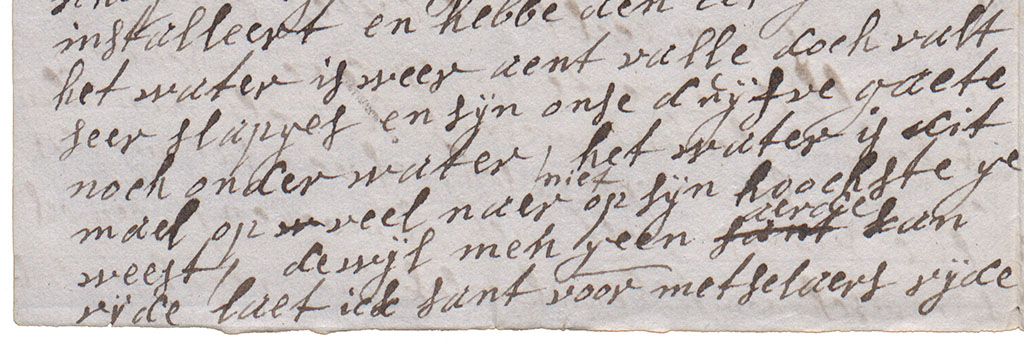 installeert en hebbe den
het water is weer aent valle doch valt
seer slapyes en syn onse duyfve gaete
noch onder water, het water is dit
mael op veel naer niet op syn hoochste ge
weest, dewyl meh geen aerde kan
ryde laet ick sant voor metselaers ryde